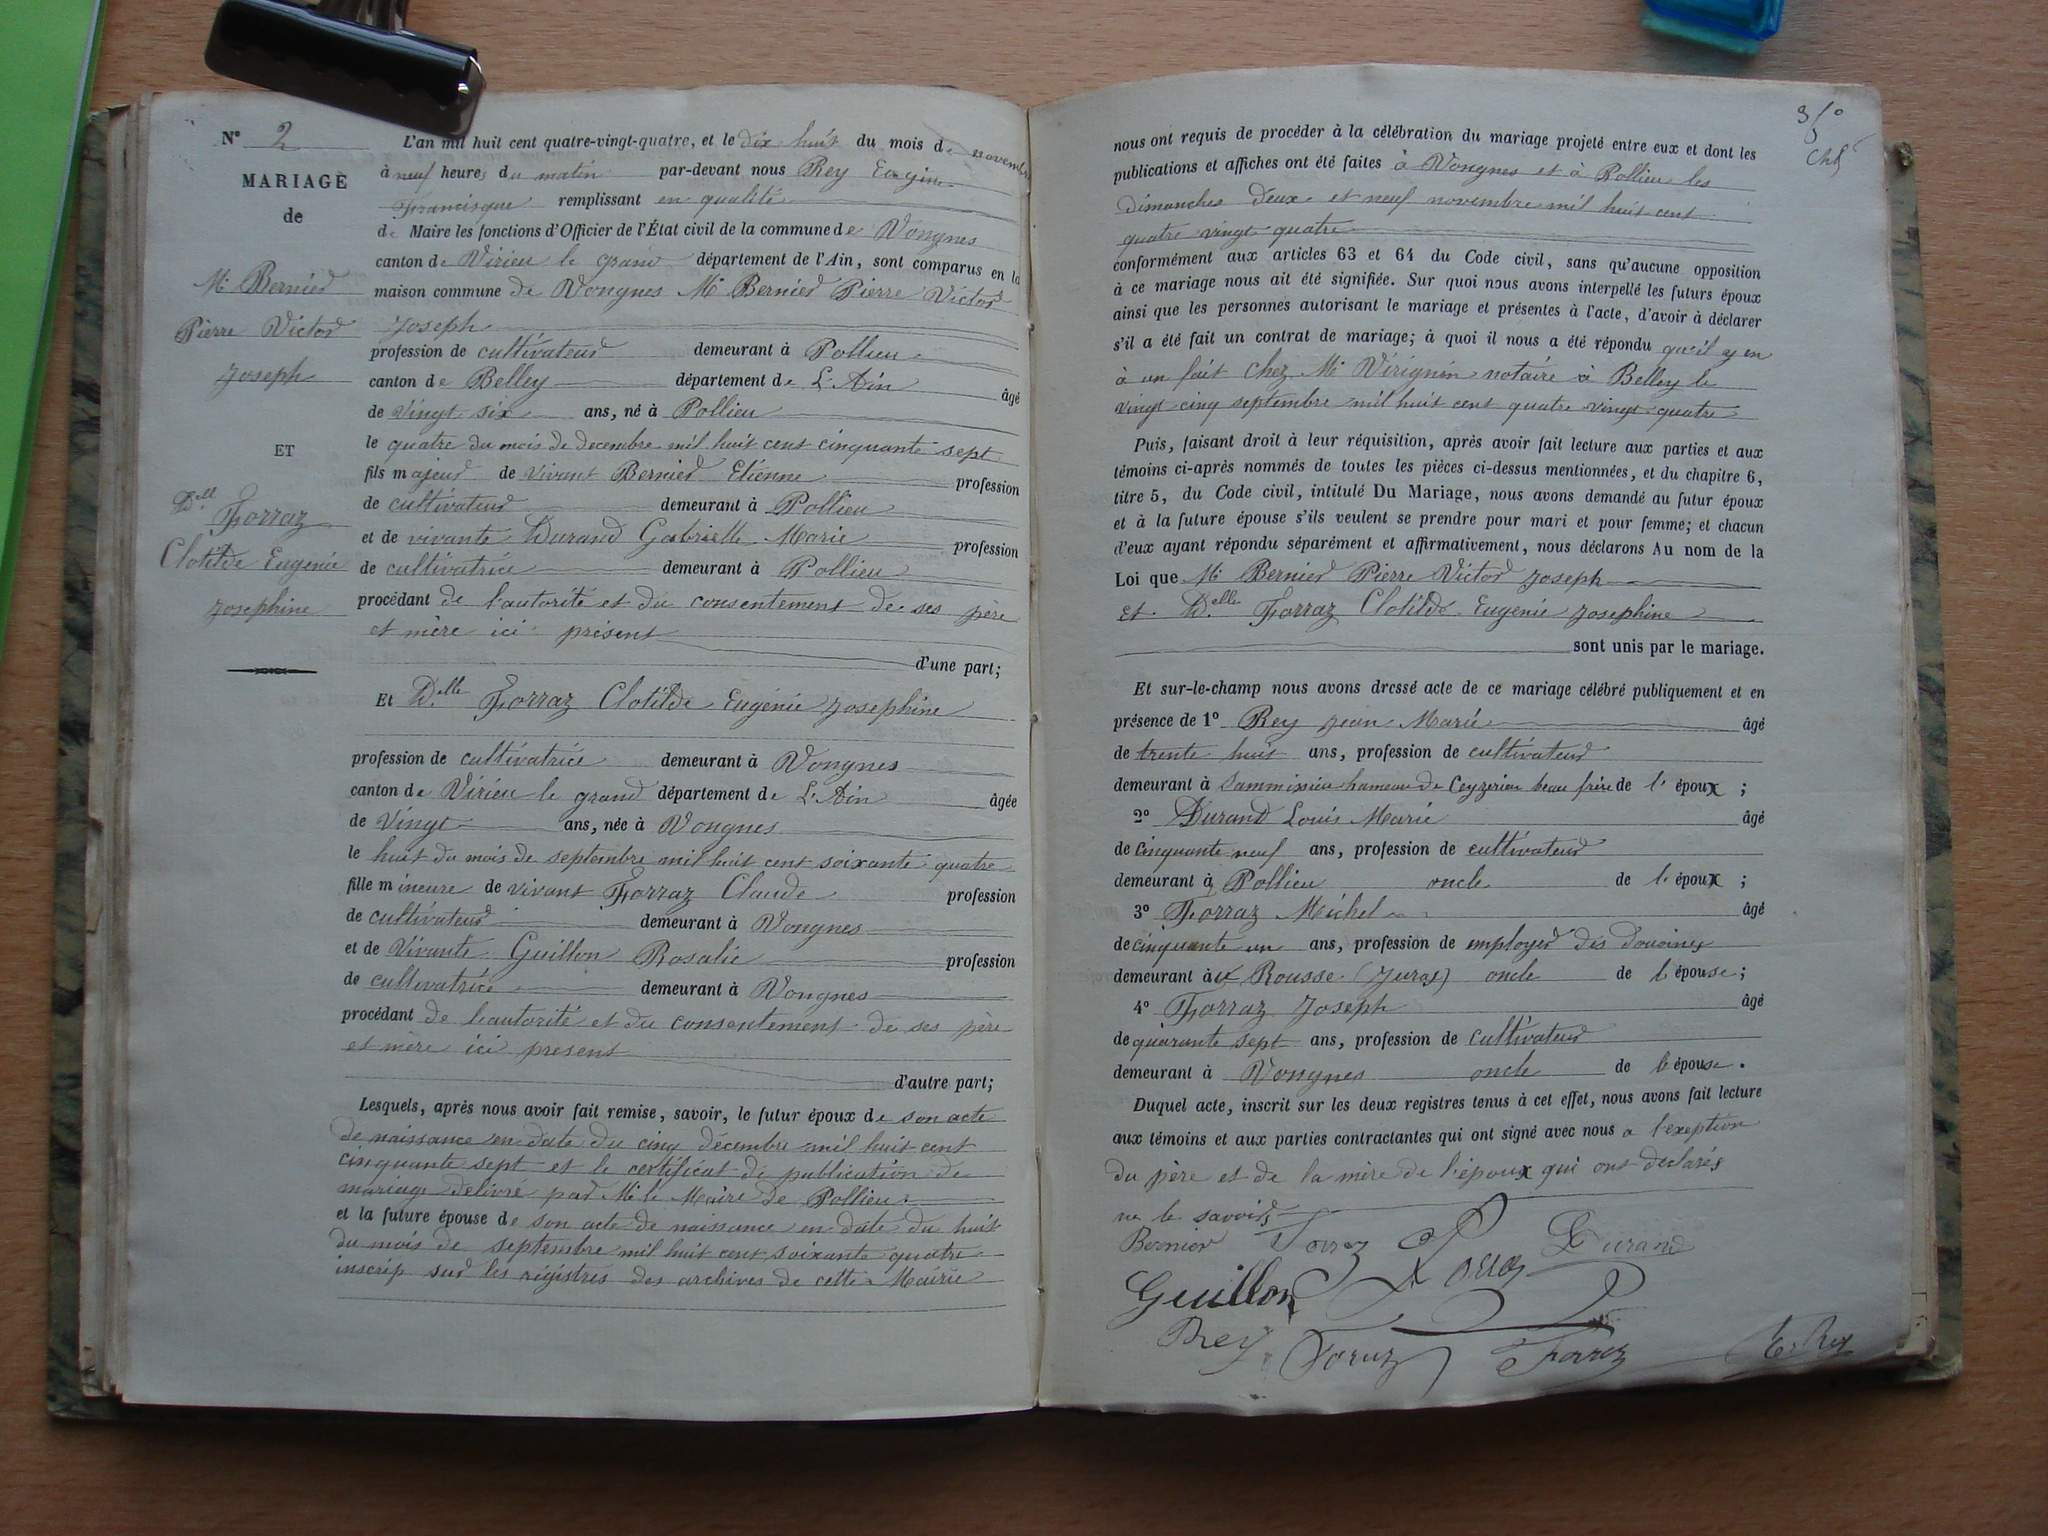 N° 2
MARIAGE
de
Mr Bernier
Pierre Victor
Joseph
ET
Delle Forraz
Clotilde Eugénie
Josephine
L'an mil huit cent quatre-vingt-quatre, et le dix huit du mois de novembre
à neuf heures du matin par-devant nous Rey Eugène
Francisque remplissant en qualité
de Maire les fonctions d'Officier de l'État civil de la commune de Vongnes
canton de Virieu le grand département de l'Ain, sont comparus en la
maison commune de Vongnes Mr Bernier Pierre Victor
Joseph
profession de cultivateur demeurant à Pollieu
canton de Belley département de L'Ain âgé
de vingt six ans, né à Pollieu
le quatre du mois de decembre mil huit cent cinquante sept
fils majeur de vivant Bernier Etienne profession
de cultivateur demeurant à Pollieu
et de vivante Durand Gabrielle Marie profession
de cultivatrice demeurant à Pollieu
procédant de l'autorité et du consentement de ses père
et mère ici présent
d'une part;
Et Delle Forraz Clotilde Eugénie Josephine
profession de cultivatrice demeurant à Vongnes
canton de Virieu le grand département de L'Ain âgée
de vingt ans, née à Vongnes
le huit du mois de septembre mil huit cent soixante quatre
fille mineure de vivant Forraz Claude profession
de cultivateur demeurant à Vongnes
et de Vivante Guillon Rosalie profession
de cultivatrice demeurant à Vongnes
procédant de l'autorité et du consentement de ses père
et mère ici present
d'autre part;
Lesquels, après nous avoir fait remise, savoir, le futur époux de son acte
de naissance en date du cinq décembre mil huit cent
cinquante sept et le certificat de publication de
mariage delivré par Mr le Maire de Pollieu
et la future épouse de son acte de naissance en date du huit
du mois de septembre mil huit cent soixante quatre
inscrip sur les régistres des archives de cette Mairie
nous ont requis de procéder à la célébration du mariage projeté entre eux et dont les
publications et affiches ont été faites à Vongnes et à Pollieu les
dimanches deux et neuf novembre mil huit cent
quatre vingt quatre
conformément aux articles 63 et 64 du Code civil, sans qu'aucune opposition
à ce mariage nous ait été signifiée. Sur quoi nous avons interpellé les futurs époux
ainsi que les personnes autorisant le mariage et présentes à l'acte, d'avoir à déclarer
s'il a été fait un contrat de mariage; à quoi il nous a été répondu qu'il y en
à un fait chez Mr Virignin notaire à Belley le
vingt cinq septembre mil huit cent quatre vingt quatre
Puis, faisant droit à leur réquisition, après avoir fait lecture aux parties et aux
témoins ci-après nommés de toutes les pièces ci-dessus mentionnées, et du chapitre 6,
titre 5, du Code civil, intitulé Du Mariage, nous avons demandé au futur époux
et à la future épouse s'ils veulent se prendre pour mari et pour femme; et chacun
d'eux ayant répondu séparément et affirmativement, nous déclarons Au nom de la
Loi que Mr Bernier Pierre Victor Joseph
et Delle Forraz Clotilde Eugénie Josephine
sont unis par le mariage.
Et sur-le-champ nous avons dressé acte de ce mariage célébré publiquement et en
présence de 1° Rey Jean Marie âgé
de trente huit ans, profession de cultivateur
demeurant à Sammisieu hameau de Ceyzerieu beau frère de l'époux;
2° Durand Louis Marie âgé
de cinquante neuf ans, profession de cultivateur
demeurant à Pollieu oncle de l'époux;
3° Forraz Michel âgé
de cinquante un ans, profession de employer des douanes
demeurant aux Rousse (Juras) oncle de l'épouse;
4° Forraz Joseph âgé
de quarante sept ans, profession de cultivateur
demeurant à Vongnes oncle de l'épouse.
Duquel acte, inscrit sur les deux registres tenus à cet effet, nous avons fait lecture
aux témoins et aux parties contractantes qui ont signé avec nous a l'exeption
du père et de la mère de l'époux qui ont declarés
ne le savoir
Bernier Forraz Durand
Guillon
Rey Forraz Forraz E. Rey